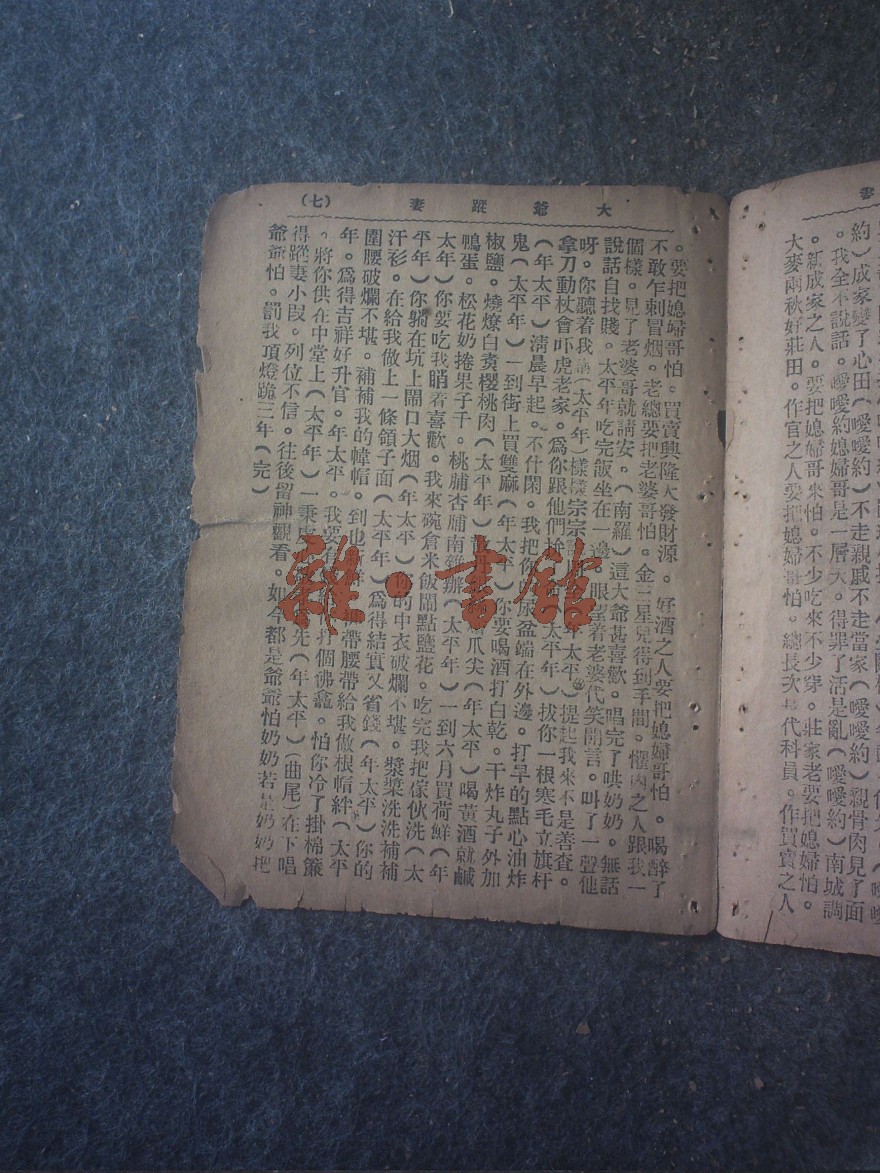 書
約）成家變了心田（噯噯約）不走親戚不走當家（噯噯約）親骨肉見了面
。我全不說話。噯噯約媳婦哥是一層天。得罪了活是亂（噯噯約）南城調
。新成家之人。要把媳婦哥來怕。不少吃來不少穿。莊家老要把媳婦怕。
大麥兩秋好莊田。作官之人要把媳婦哥怕。總長次長代科員。作買賣之人
大爺蹤妻 （七）
。要把媳婦哥怕。買賣興隆大發財源。好酒之人要把媳婦哥怕。喝醉了
不敢乍刺冒烟。老總要把老婆哥怕。金三星兒得到手間。懼內之人跟我一
個樣。見了老婆哥就請安。（南羅）這大爺甚喜歡。唱完了哄奶奶。無話
說話自找賤。太平年吃完飯坐在一邊。眼望着老婆代笑開言。叫了一聲他
呀。你聽着我講（太平年）樣樣宗宗 年太平）提起我來不是善查。
拿刀動杖會吓虎老家。爲你跟他們 太平年）拔你一根寒毛立旗杆
（年太平）清晨早起。不什閑。我把你 尿盆端在外邊。打早的點心油炸
鬼（太平年）一到街上買雙麻（年太平）你要喝酒打白乾。干炸丸子外加
椒鹽。燒燎白煑櫻桃肉（太平年） 爪尖（年太平）喝黃酒就鹹
鴨蛋。松花奶捲果子干。桃脯杏脯南雜辦（太平年）一到六月買荷鮮（年
太年）你要吃我睄着喜歡。我來碗倉米飯鬧點鹽花。吃完我把傢伙洗（太
平年）你躺在坑上鬧口大烟（年太平）你的中衣破爛不堪。漿漿洗洗補補
汗衫。在給我做上一條領子面（太平年）爲得結實又省錢（年太平）你的
圍腰破爛不堪。補補我的幃帽。到也 帶腰帶給我做根帽絆（太平
年。爲得吉祥好升官。年太平。我要有 打個佛龕。怕你冷了掛棉簾
。將你供在中堂上（太平年）一秉虔 先（年太平）（曲尾）在下唱
得蹤妻小段。列位不信。往後留神觀看。如今都是爺爺怕奶奶若是奶奶把
爺爺怕。罰我頂燈跪三年（完）
雜·書館